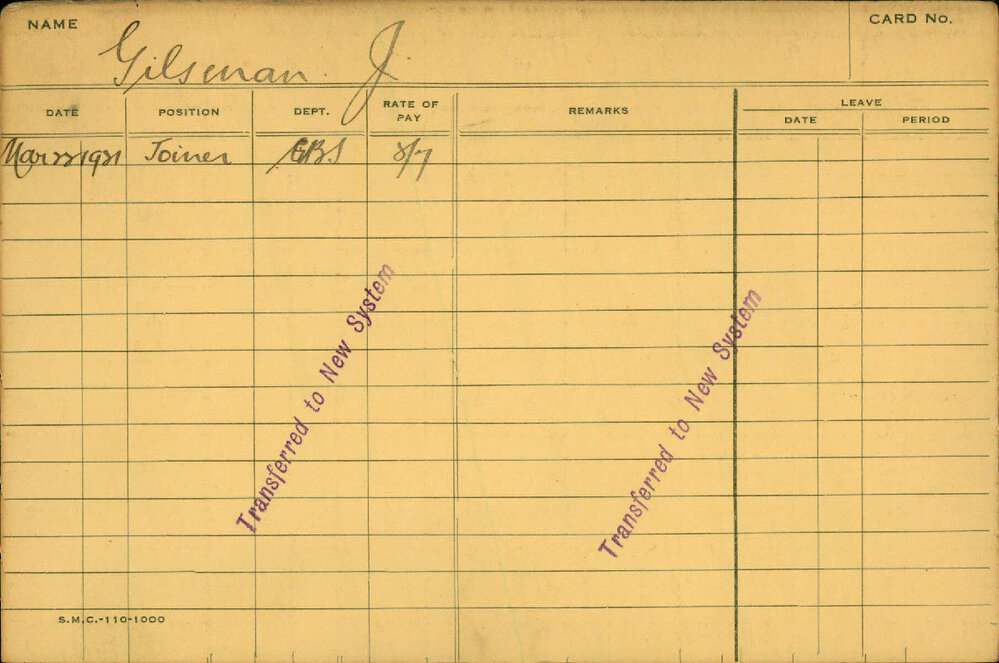 NAME
Gilsenan J
CARD No.
DATE POSITION DEPT. RATE OF PAY REMARKS LEAVE
DATE PERIOD
Mar 22 1921 Joiner EBS
Transferred to New System
Transferred to New System
S.M.C.-110-1000